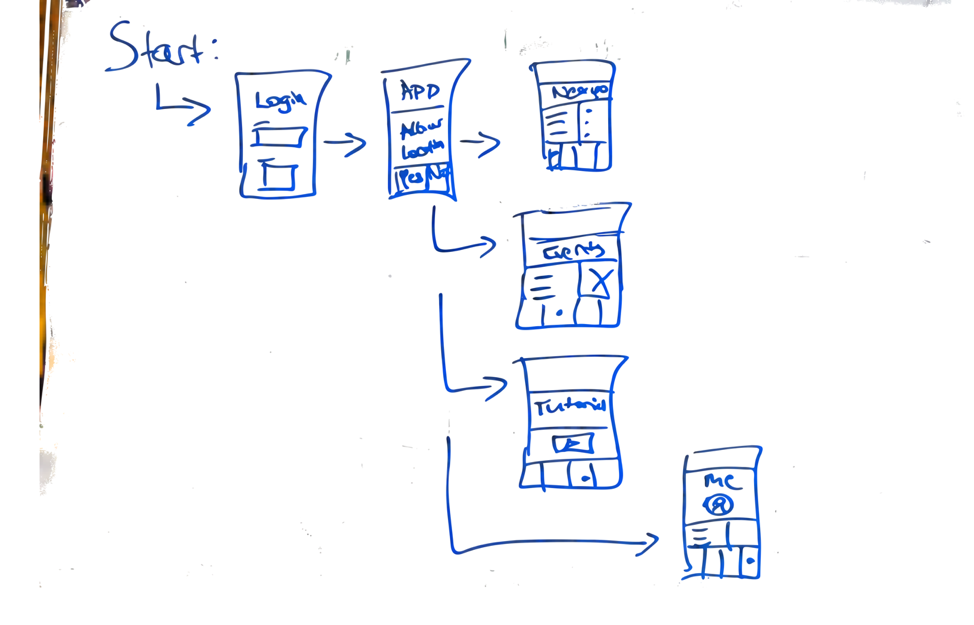 Start:
Login
APP
Allow
Location
Yes No
Events
Tutorial
Me